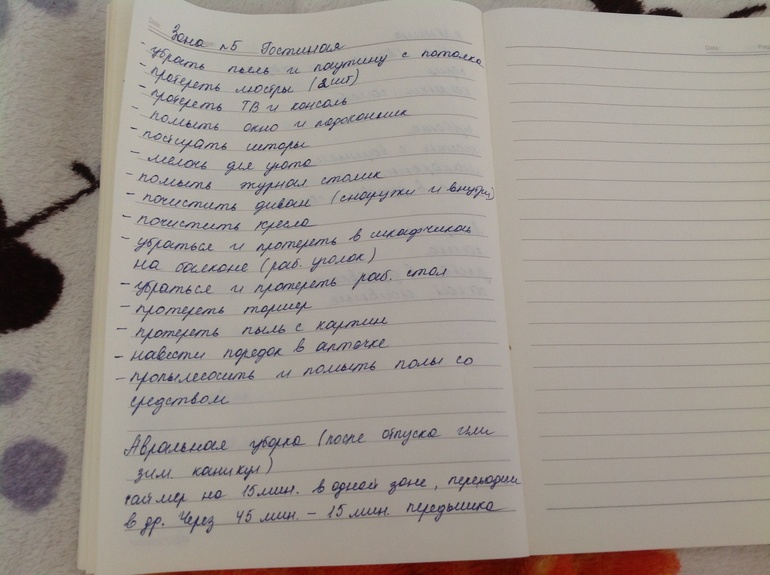 Зона №5 Гостиная
- убрать пыль и паутину с потолка
- протереть люстры (2 шт)
- протереть ТВ и консоль
- помыть окно и подоконник
- постирать шторы
- мелочь для уюта
- помыть журнал столик
- почистить диван (снаружи и внутри)
- почистить кресла
- убраться и протереть в шкафчиках
на балконе (раб. уголок)
- убраться и протереть раб. стол
- протереть торшер
- протереть пыль с картин
- навести порядок в аптечке
- пропылесосить и помыть полы со
средством
Авральная уборка (после отпуска или
зим. каникул)
таймер на 15 мин. в одной зоне, переходим
в др. Через 45 мин. - 15 мин. передышка